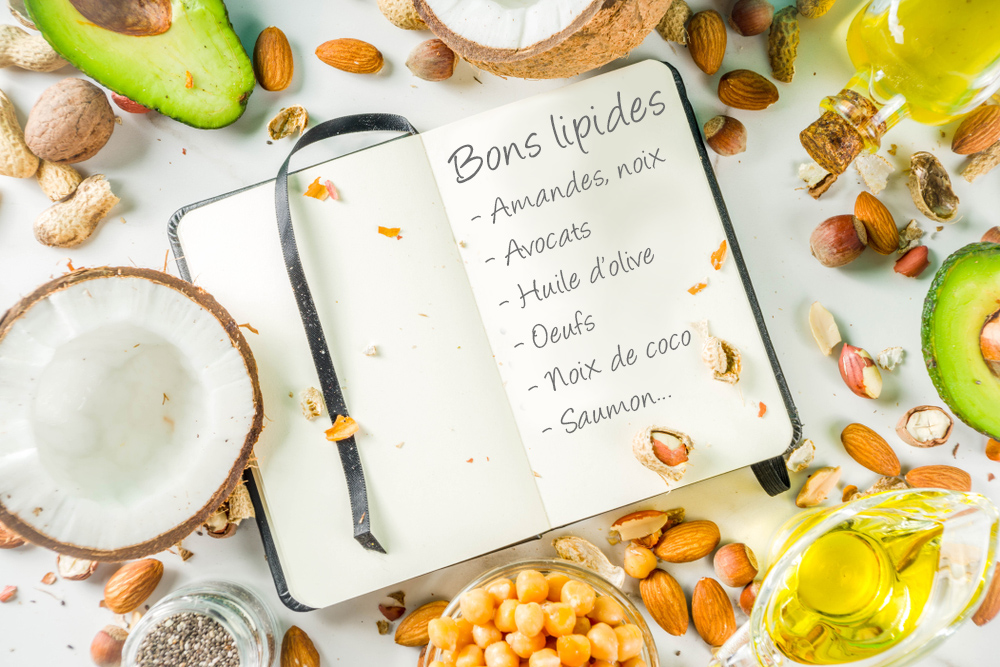 Bons lipides
- Amandes, noix
- Avocats
- Huile d'olive
- Oeufs
- Noix de coco
- Saumon...